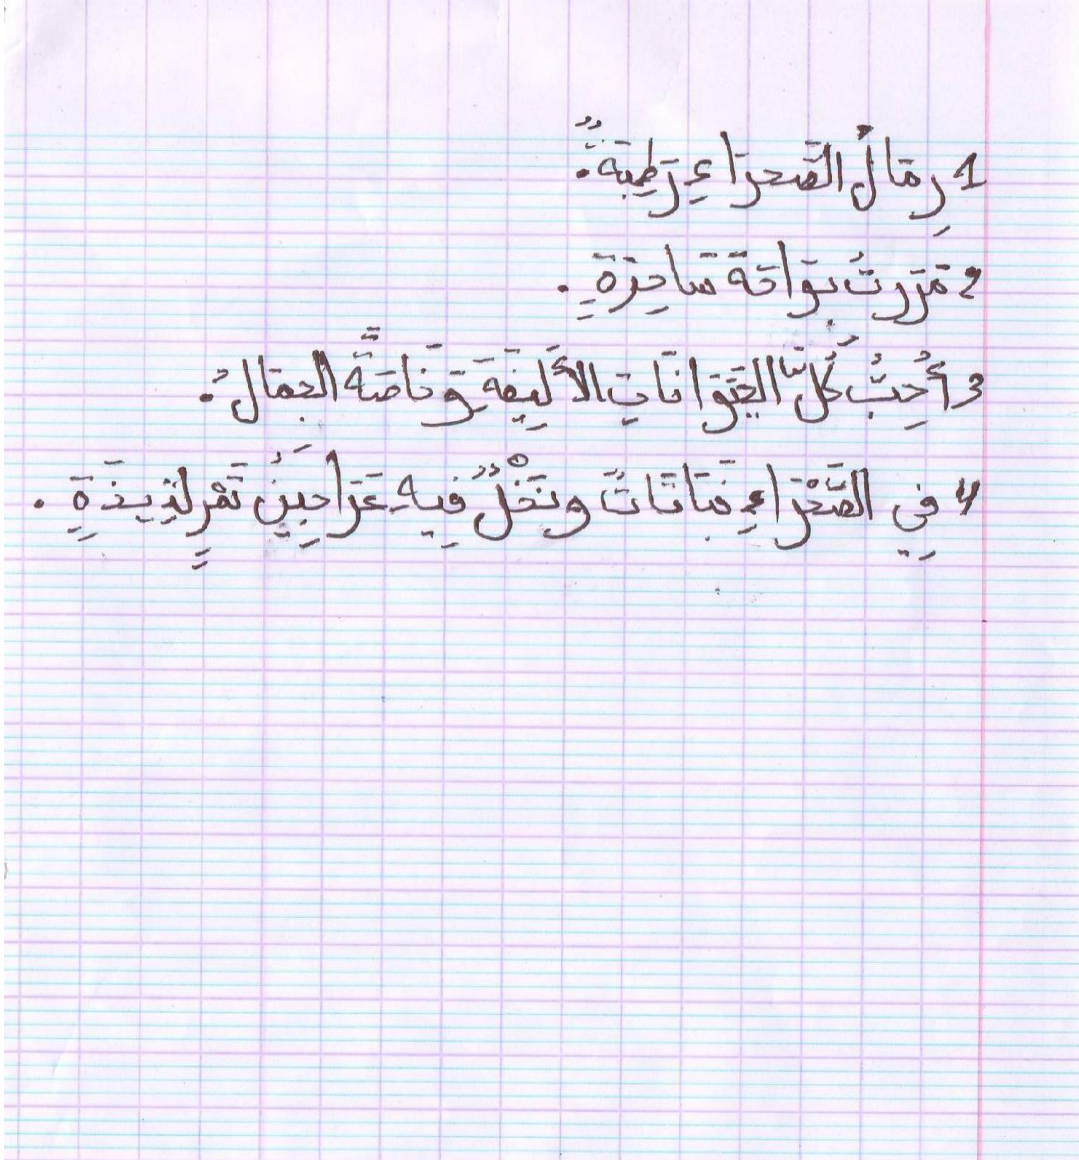 1 رِمَالُ الصَّحرَاءِ رَطِبَةٌ.
2 مَرَرتُ بِوَاحَة سَاحِرَةٍ.
3 أُحِبُّ كُلَّ الحَيَوَانَاتِ الأَلِيفَةِ وَخَاصَّةً الجِمَالُ.
4 فِي الصَّحْرَاءِ نَبَاتَاتٌ ونَخْلٌ فِيهِ عَرَاجِينُ تَمْرٍ لَذِيذَةٍ.